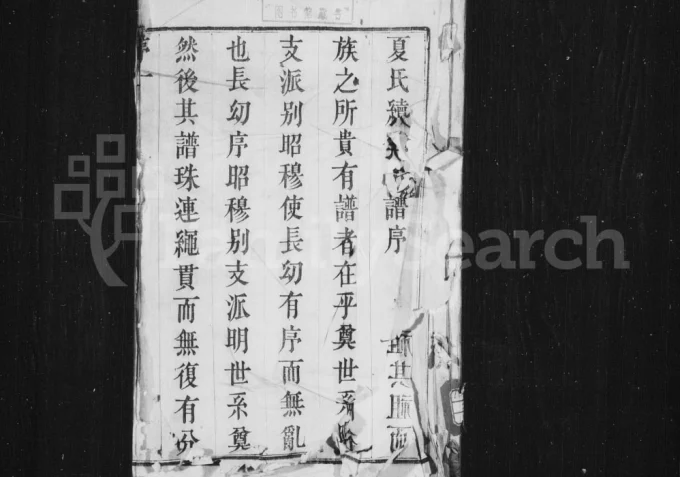 夏氏續譜序
族之所貴有譜者在乎奠世系
支派別昭穆使長幼有序而無亂
也長幼序昭穆別支派明世系奠
然後其譜珠連繩貫而無復有分
FamilySearch